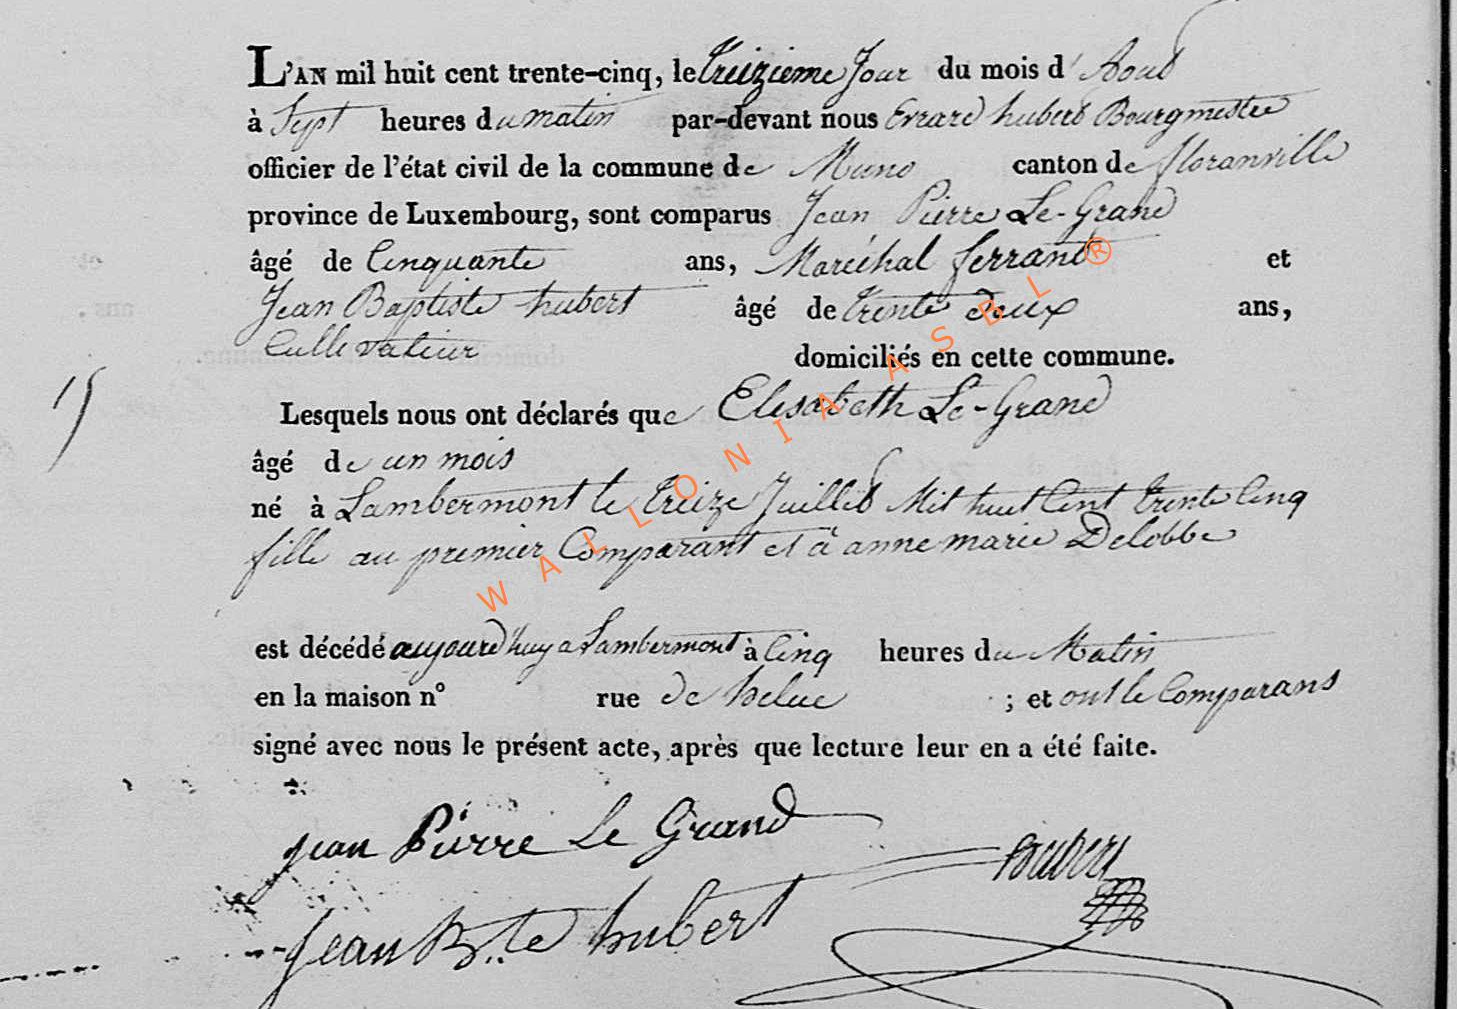 L'AN mil huit cent trente-cinq, le treizieme Jour du mois d'Aout
à Sept heures du matin par-devant nous Errard hubert Bourgmestre
officier de l'état civil de la commune de Muno canton de floranville
province de Luxembourg, sont comparus Jean Pierre Le-Grand
âgé de Cinquante ans, Maréchal ferrant et
Jean Baptiste hubert âgé de trente deux ans,
Cultivateur domiciliés en cette commune.
15
Lesquels nous ont déclarés que Elisabeth Le-Grand
âgé de un mois
né à Lambermont le treize Juillet Mil huit Cent trente Cinq
fille au premier Comparant et à anne marie Delobbe
est décédé aujourd'huy a Lambermont à Cinq heures du Matin
en la maison n° rue de ; et ont le Comparans
signé avec nous le présent acte, après que lecture leur en a été faite.
Jean Pierre Le Grand
hubert
Jean B.te hubert
WALLONIA ASBL ®